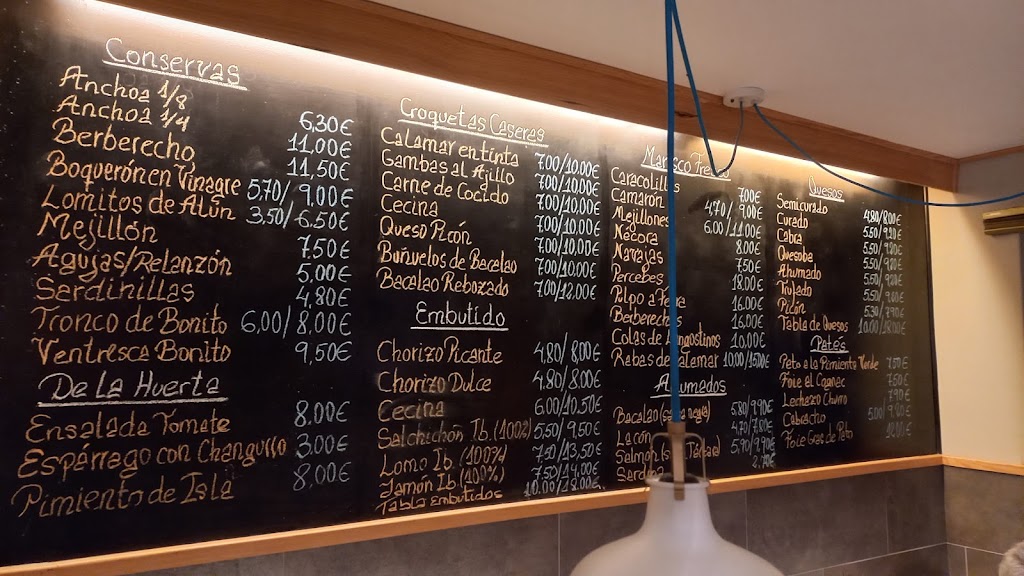 Conservas
Anchoa 1/8 6,30€
Anchoa 1/4 11,00€
Berberecho 11,50€
Boquerón en Vinagre 5,70/ 9,00€
Lomitos de Atún 3,50/6,50€
Mejillón 7.50€
Agujas/Relanzón 5,00€
Sardinillas 4,80€
Tronco de Bonito 6,00/8,00€
Ventresca Bonito 9,50€
De La Huerta
Ensalada Tomate 8.00€
Espárrago con Changurro 3.00€
Pimiento de Isla 8,00€
Croquetas Caseras
Calamar en tinta 7.00/10.00€
Gambas al Ajillo 7.00/10.00€
Carne de Cocido 7.00/10.00€
Cecina 7.00/10.00€
Queso Picón 7.00/10.00€
Buñuelos de Bacalao 7.00/10.00€
Bacalao Rebozado 7.00/12.00€
Embutido
Chorizo Picante 4.80/8.00€
Chorizo Dulce 4.80/8.00€
Cecina 6.00/10.50€
Salchichón Ib. (100%) 5,50/9.50€
Lomo Ib. (100%) 7,50/13,50€
Jamón Ib (100%)
Tabla Embutidos
Marisco
Caracolillos 7.00€
Camarón 4,70/ 9,00€
Mejillones 6.00/11.00€
Nécora 8.00€
Navajas 7,50€
Percebes 18.00€
Pulpo a 16.00€
Berberechos 16,00€
Colas de 10,00€
Rabas de 10.00/15,00€
Ahumados
Bacalao 5.80/9.90€
Lacón 4.70/7.80€
Salmón 5,90/9.90€
Quesos
Semicurado 4,80/8.00€
Curado 5.50/9.20€
Cabra 5.50/9.20€
Quesoba 5,50/9.80€
Ahumado 5.50/9.80€
5.50/9.80€
Picón 5.30/9.80€
Tabla de Quesos 10.00/18.00€
Patés
Paté a la Pimienta Verde 7.50€
Foie al Cognac 7.50€
Lechazo Churro 7.90€
Cabracho 5.00/ 9.80€
Foie Gras de Pato